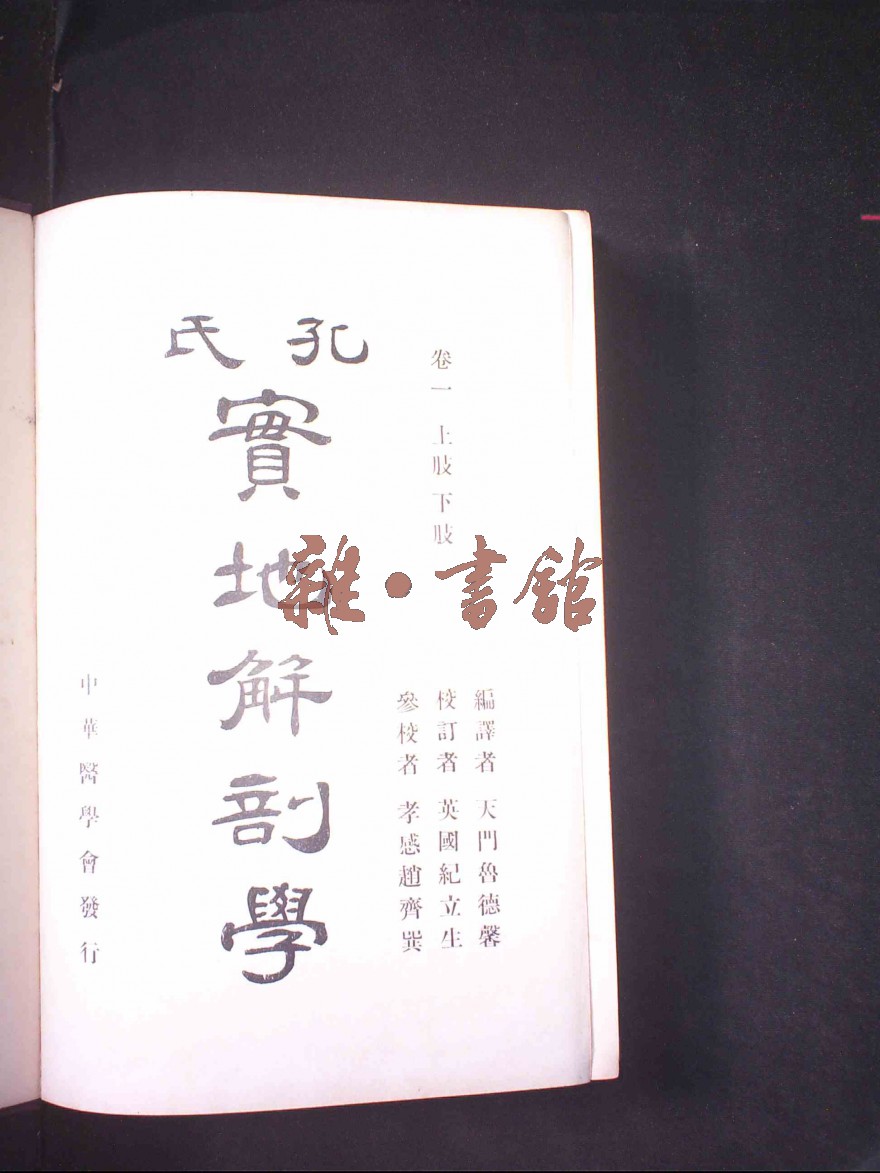 孔氏
實地解剖學
卷一 上肢下肢
編譯者 天門魯德馨
校訂者 英國紀立生
參校者 孝感趙齊巽
中華醫學會發行
雜·書館